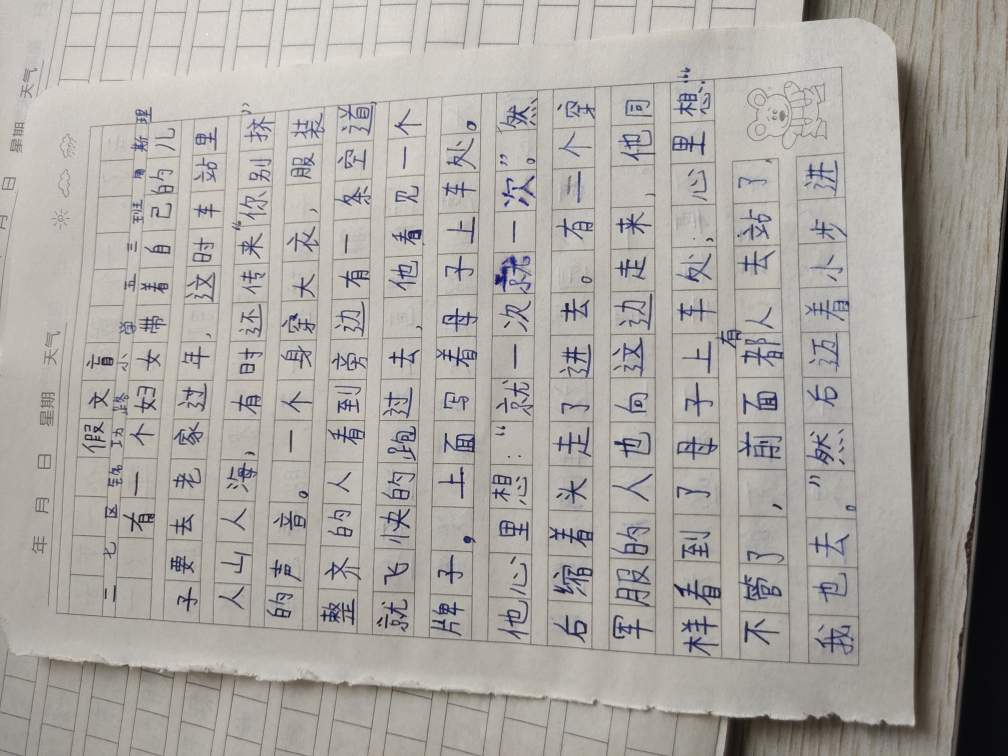 年 月 日 星期 天气
假文盲
二七区 路小学 五三班 斯理
有一个妇女带着自己的儿
子要去老家过年，这时车站里
人山人海，有时还传来“你别挤”
的声音。一个身穿大衣，服装
整齐的人看到旁边有一条空道
就飞快的跑过去，他看见一个
牌子，上面写着母子上车处。
他心里想：“就一次就一次。”然
后缩着头走了进去。有一个穿
军服的人也向这边走来，他同
样看到了母子上车处；心里想：“
不管了，前面都有人去站了，
我也去。”然后迈着小步进
星期 天气
月 日